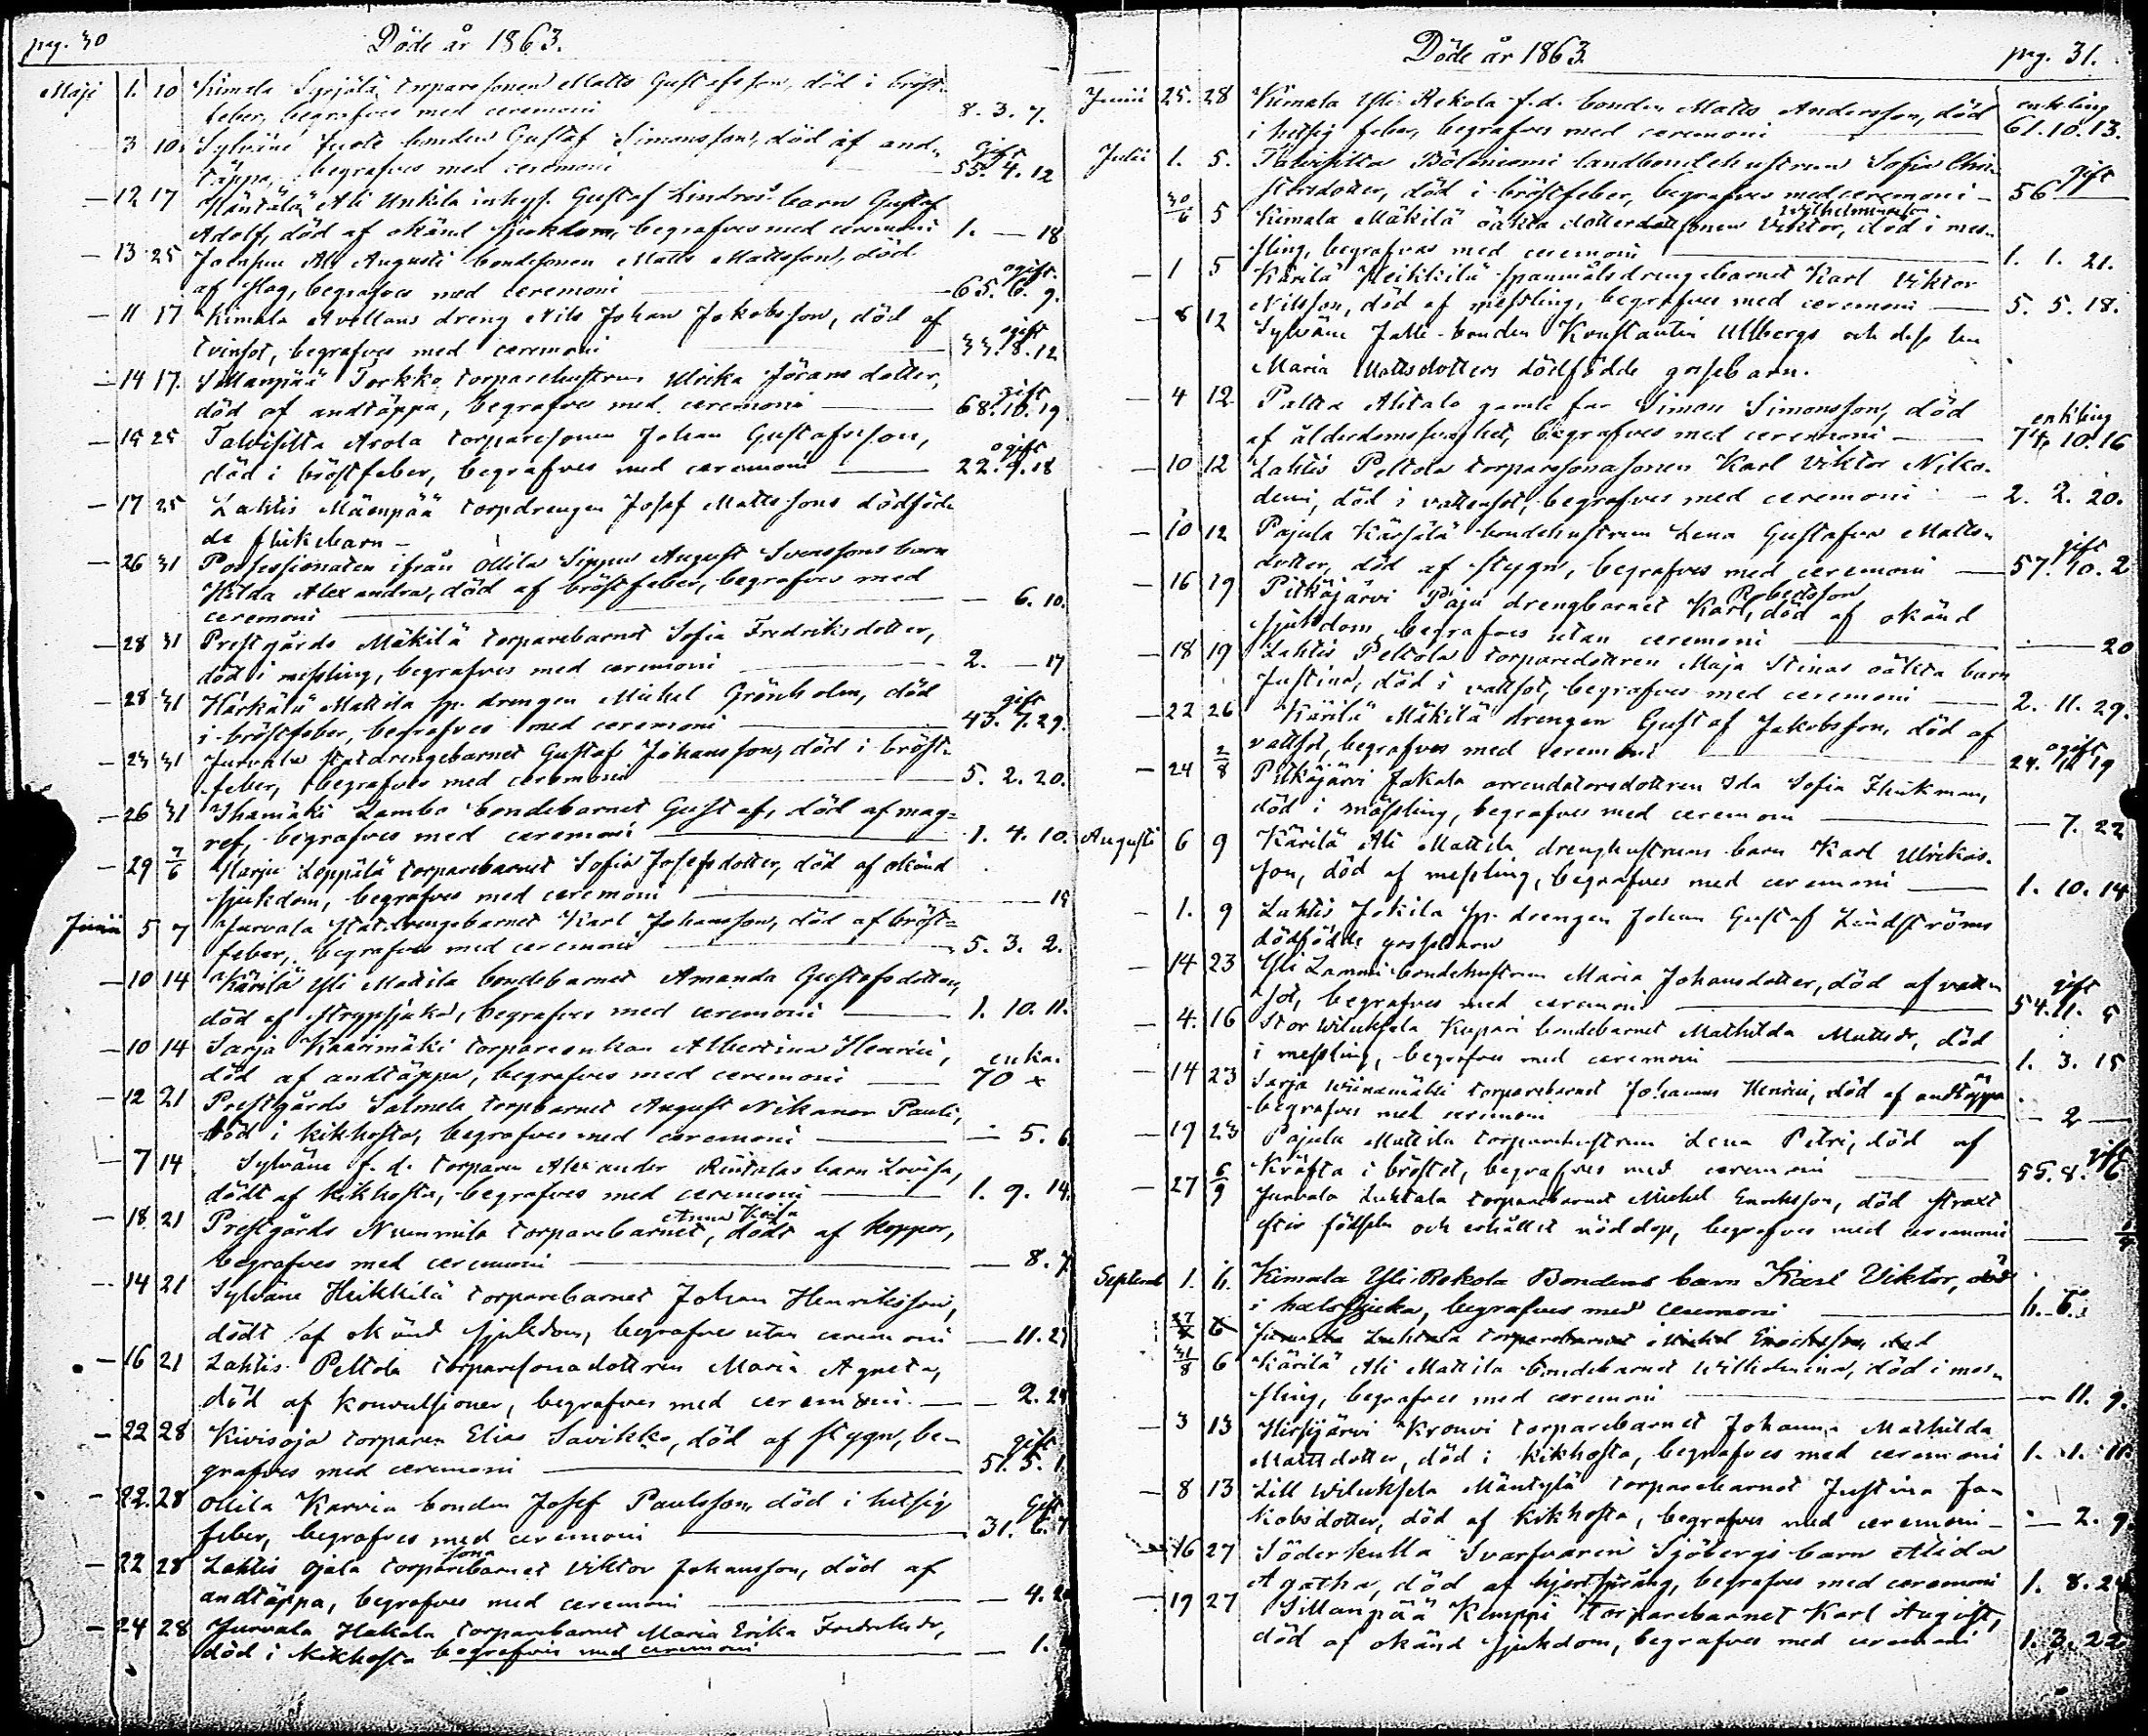 pag. 30
Döde år 1863.
Maji 1. 10 Kimala Syrjälä torparesonen Matts Gustafsson, död i bröst-
feber, begrafves med ceremoni 8. 3. 7.
3 10 Sylvänä Juote bonden Gustaf Simonsson, död af and- gift
täppa, begrafves med ceremoni 55. 4. 12
— 12 17 Ali Unkila inhys. Gustaf Lindros barn Gustaf
Adolf, död af okänd sjukdom, begrafves med ceremoni 1. — 18
— 13 25 Ali Augusti bondesonen Matts Mattsson, död ogift
af slag, begrafves med ceremoni 65. 6. 9.
— 11 17 Kimala Avellans dreng Nils Johan Jakobsson, död af ogift
tvinsot, begrafves med ceremoni 33. 8. 12
— 14 17. Sillanpää Torkko torparehustrun Ulrika Jörans dotter, gift
död af andtäppa, begrafves med ceremoni 68. 10. 19
— 15 25 Talvisilta Arola torparesonen Johan Gustafsson, ogift
död i bröstfeber, begrafves med ceremoni 22. 9. 18
— 17 25 Lahtis Mäenpää torpdrengen Josef Mattssons dödföd-
de flickbarn -
— 26 31 Possessionaten ifrån Ollila Sippus August Svenssons barn
Hilda Alexandra, död af bröstfeber, begrafves med
ceremoni — 6. 10.
— 28 31 Prestgårds Mäkilä torparebarnet Sofia Fredriksdotter,
död i messling, begrafves med ceremoni 2. — 17
— 28 31 Härkälä Mattila sp. drengen Michel Grönholm, död gift
i bröstfeber, begrafves med ceremoni 43. 7. 29.
— 23 31 Jurvala statdrengebarnet Gustaf Johansson, död i bröst-
feber, begrafves med ceremoni 5. 2. 20.
— 26 31 Ihamäki Lambo bondebarnet Gustaf, död af mag-
ref, begrafves med ceremoni 1. 4. 10.
— 29 7/6 Harju Leppälä torparebarnet Sofia Josefsdotter, död af okänd
sjukdom, begrafves med ceremoni — 19
Junii 5 7 Jurvala Statdrengebarnet Karl Johansson, död af bröst-
feber, begrafves med ceremoni 5. 3. 2.
— 10 14 Kärilä Yli Mattila bondebarnet Amanda Gustafsdotter,
död af strypsjuka, begrafves med ceremoni 1. 10. 11.
— 10 14 Sarja Kaarimäki torpareenkan Albertina Henrici, enka.
död af andtäppa, begrafves med ceremoni 70 x
— 12 21 Prestgårds Salmela torpbarnet August Nikanor Pauli,
död i kikhosta, begrafves med ceremoni — 5. 6
— 7 14 Sylväne f. d. torparen Alexander Rintalas barn Lovisa,
dödt af kikhosta, begrafves med ceremoni 1. 9. 14.
— 18 21 Prestgårds Nummila torparebarnet Anna Kajsa, dödt af koppor,
begrafves med ceremoni — 8. 7
— 14 21 Sylväne Heikkilä torparebarnet Johan Henriksson,
dödt af okänd sjukdom, begrafves utan ceremoni — 11. 27
— 16 21 Lahtis Peltola torparesonadottren Maria Agneta,
död af konvulsioner, begrafves med ceremoni — 2. 24
— 22 28 Kivisoja torparen Elias Savikko, död af stygn, be- gift
grafves med ceremoni 51. 5. 1
— 22. 28 Ollila Karvia bonden Josef Paulsson, död i hetsig gift
feber, begrafves med ceremoni 31. 6. 7
— 22 28 Lahtis Ojala torparesonabarnet Viktor Johansson, död af
andtäppa, begrafves med ceremoni — 4. 20
— 24 28 Jurvala Hakala torparebarnet Maria Erika Fredriksdr,
död i kikhosta begrafves med ceremoni — 1.
Döde år 1863. pag. 31.
Junii 25. 28 Kimala Yli Rekola f. d. bonden Matts Andersson, död enkling
i hetsig feber, begrafves med ceremoni 61. 10. 13.
Julii 1. 5. Talvisilta Böleniemi landbondehustrun Sofia Chri- gift
stersdotter, död i bröstfeber, begrafves med ceremoni 56
30/6 5 Kimala Mäkilä oäkta dotterdottersonen Viktor Wilhelminasson, död i mes-
sling, begrafves med ceremoni 1. 1. 21.
— 1 5 Kärilä Heikkilä spannmålsdrengebarnet Karl Viktor
Nilsson, död af messling, begrafves med ceremoni 5. 5. 18.
— 8 12 Sylväne Jalli bonden Konstantin Ullbergs och dess hu
Maria Mattsdotters dödfödde gossebarn.
— 4 12 Paltta Alitalo gamle far Simon Simonsson, död enkling
af ålderdomssvaghet, begrafves med ceremoni 74. 10. 16
— 10 12 Lahtis Peltola torparesonasonen Karl Viktor Niko-
demi, död i vattusot, begrafves med ceremoni 2. 2. 20.
— 10 12 Pajula Kärjälä bondehustrun Lena Gustafva Matts- gift
dotter, död af stygn, begrafves med ceremoni 57. 10. 2
— 16 19 Pitkäjärvi Paju drengbarnet Karl Robertsson, död af okänd
sjukdom begrafves utan ceremoni — 20
— 18 19 Lahtis Peltola torparedottren Maja Stinas oäkta barn
Justina, död i vattsot, begrafves med ceremoni 2. 11. 29.
— 22 26 Kärilä Mäkilä drengen Gustaf Jakobsson, död af ogift
vattsot, begrafves med ceremoni 24. 19
— 24 2/8 Pitkäjärvi Jakala arrendatorsdottren Ida Sofia Flinkman,
död i mässling, begrafves med ceremoni — 7. 22
Augusti 6 9 Kärilä Ali Mattila drenghustruns barn Karl Ulrikas-
son, död af messling, begrafves med ceremoni 1. 10. 14
— 1. 9 Lahtis Jokila sp. drengen Johan Gustaf Lindströms
dödfödde gossebarn
— 14 23 Yli Lammi bondehustrun Maria Johansdotter, död af vattu- gift
sot, begrafves med ceremoni 54. 11. 5
— 4. 16 Stor Wiluksela Kupari bondebarnet Mathilda Mattsdr, död
i messling, begrafves med ceremoni 1. 3. 15
— 14 23 Sarja Wiinamäki torparebarnet Johannes Henrici, död af andtäppa
begrafves med ceremoni — 2 —
— 19 23 Pajula Mattila torparehustrun Lena Petri, död af gift
kräfta i bröstet, begrafves med ceremoni 55. 8. 6
— 27 6/9 Jurvala Luhtala torparebarnet Michel Enocksson, död straxt
efter födseln och erhållit nöddop, begrafves med ceremoni
Septemb 1. 6. Kimala Yli Rekola Bondens barn Karl Viktor, död
i halssjuka, begrafves med ceremoni 6. 6.
27/8 6 Jurvala Luhtala torparebarnet Michel Enocksson, död
31/8 6 Kärilä Ali Mattila bondebarnet Wilhelmina, död i mes-
sling, begrafves med ceremoni — 11. 9.
— 3 13 Hirsjärvi Krouvi torparebarnet Johanna Mathilda
Mattsdotter, död i kikhosta, begrafves med ceremoni 1. 1. 11.
— 8 13 Lill Wiluksela Mäntylä torparebarnet Justina Ja-
kobsdotter, död af kikhosta, begrafves med ceremoni — 2. 9.
— 16 27 Söderkulla Svarfvaren Sjöbergs barn Alida
Agatha, död af hjertsprång, begrafves med ceremoni 1. 8. 24
— 19 27 Sillanpää Kemppi torparebarnet Karl August,
död af okänd sjukdom, begrafves med ceremoni 1. 3. 22